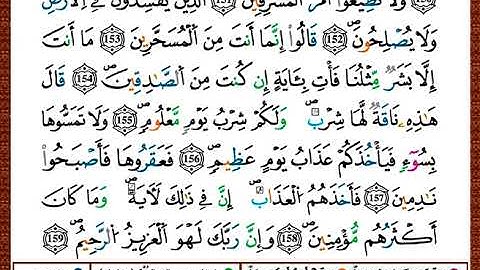 وَلَا تُطِيعُوٓا۟ أَمْرَ ٱلْمُسْرِفِينَ ١٥١ ٱلَّذِينَ يُفْسِدُونَ فِى ٱلْأَرْضِ
وَلَا يُصْلِحُونَ ١٥٢ قَالُوٓا۟ إِنَّمَآ أَنتَ مِنَ ٱلْمُسَحَّرِينَ ١٥٣ مَآ أَنتَ
إِلَّا بَشَرٌ مِّثْلُنَا فَأْتِ بِـَٔايَةٍ إِن كُنتَ مِنَ ٱلصَّـٰدِقِينَ ١٥٤ قَالَ
هَـٰذِهِۦ نَاقَةٌ لَّهَا شِرْبٌ وَلَكُمْ شِرْبُ يَوْمٍ مَّعْلُومٍ ١٥٥ وَلَا تَمَسُّوهَا
بِسُوٓءٍ فَيَأْخُذَكُمْ عَذَابُ يَوْمٍ عَظِيمٍ ١٥٦ فَعَقَرُوهَا فَأَصْبَحُوا۟
نَـٰدِمِينَ ١٥٧ فَأَخَذَهُمُ ٱلْعَذَابُ إِنَّ فِى ذَٰلِكَ لَـَٔايَةً وَمَا كَانَ
أَكْثَرُهُم مُّؤْمِنِينَ ١٥٨ وَإِنَّ رَبَّكَ لَهُوَ ٱلْعَزِيزُ ٱلرَّحِيمُ ١٥٩